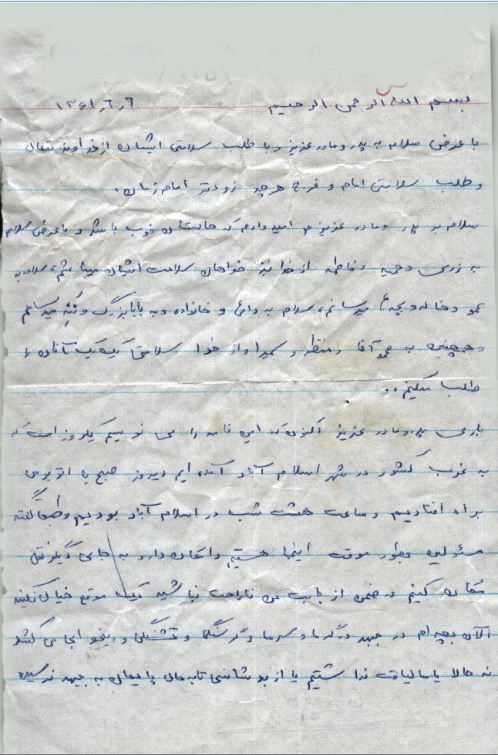 بسم الله الرحمن الرحیم ۱۳۶۱/۶/۶
با عرض سلام به پدر و مادر عزیز و با طلب سلامتی ایشان از خداوند متعال
و طلب سلامتی امام و فرج هرچه زودتر امام زمان.
سلام بر پدر و مادر عزیزم امیدوارم که حالتان خوب باشد و با عرض سلام
به و فاطمه از خداوند خواهان سلامت ایشان سلام به
عمو و خاله و میرسانم، سلام به دائی و خانواده و به بابابزرگ و ننه میرسانم
و همچنین به عمو آقا و منظر و کبرا و از خدا سلامتی یک یک آنان را
طلب میکنم.
باری پدر و مادر عزیز اکنون که این نامه را می نویسم یکروز است که
به غرب کشور در شهر اسلام آباد آمده ایم دیروز صبح با اتوبوس
براه افتادیم و ساعت هشت شب در اسلام آباد بودیم و طبق گفته
مسئولین بطور موقت اینجا هستیم و امکان دارد به جای دیگر نقل
مکان کنیم در ضمن از بابت من ناراحت نباشید یک موقع خیال نکنید
الآن بچه ام در جبهه در گرما و سرما و گرسنگی و تشنگی و اینجور می کشد
نه حالا یا ما لیاقت نداشتیم یا از بد شانسی تابحال پایمان به جبهه نرسیده